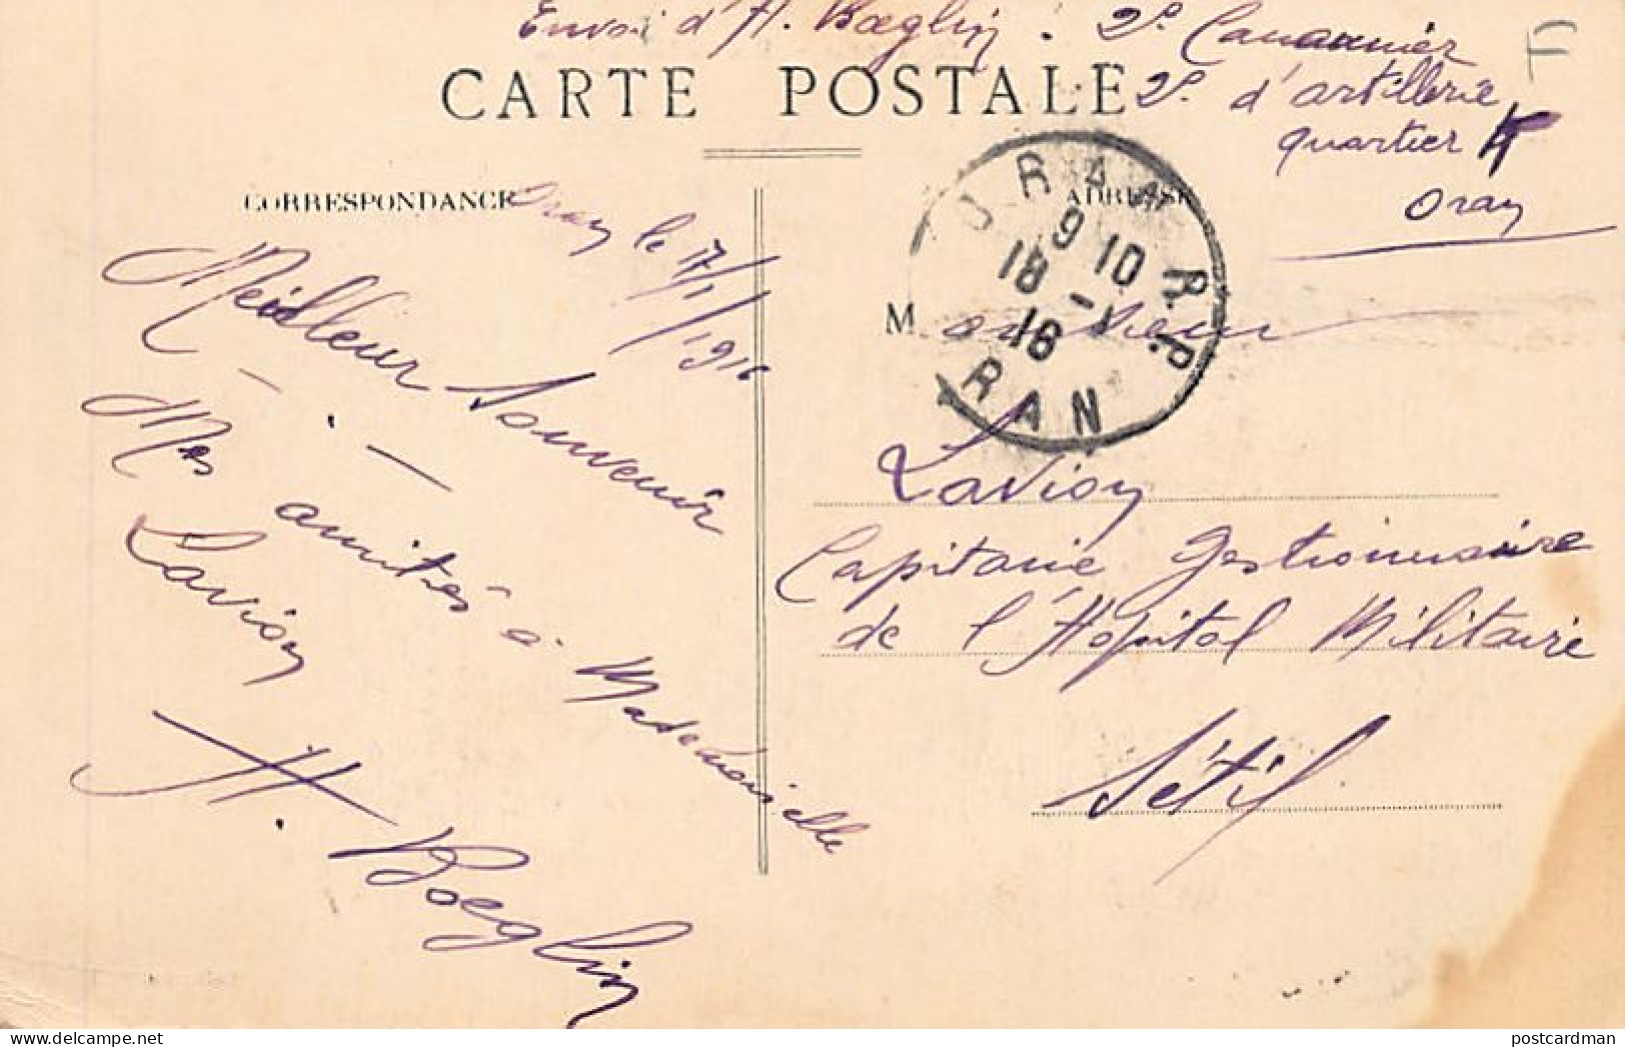 Envoi d'H. Bœglin. 2e Canonnier
CARTE POSTALE
2e d'artillerie
quartier
Oran
CORRESPONDANCE
ADRESSE
Oran le 17/1/1916
Meilleur Souvenir
Mes amitiés à Mademoiselle
Lavion
H. Boeglin
ORAN R.P.
9 10
18 -1
16
ORAN
Monsieur
Lavion
Capitaine gestionnaire
de l'Hôpital Militaire
Sétif
postcardman